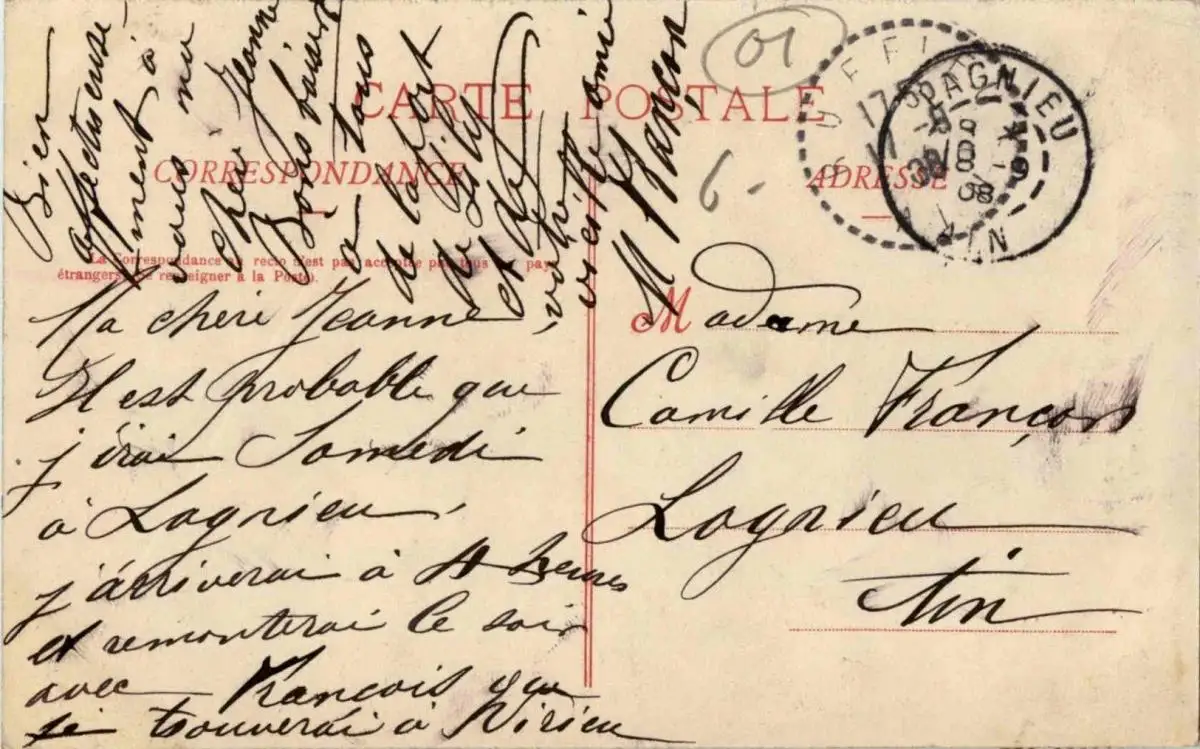 CARTE POSTALE
CORRESPONDANCE
ADRESSE
La Correspondance au recto n'est pas acceptée par tous les pays
étrangers (Se renseigner à la Poste).
Ma chère Jeanne
Il est probable que
j'irai Samedi
à Lagnieu,
j'arriverai à 4 heures
et remonterai le soir
avec François que
je trouverai à Virieu
Bien
affectueuse
ment à
vous ma
chère Jeanne
Bons baisers
à tous
de
et
votre
vieille amie
M François
Madame
Camille Françon
Lagnieu
Ain
01
6-
LAGNIEU
AIN
08